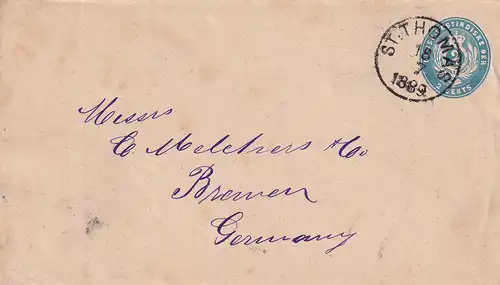 ST. THOMAS
1889
VESTINDISKE ØER
2 CENTS
Messrs
C. Melchers & Co
Bremen
Germany